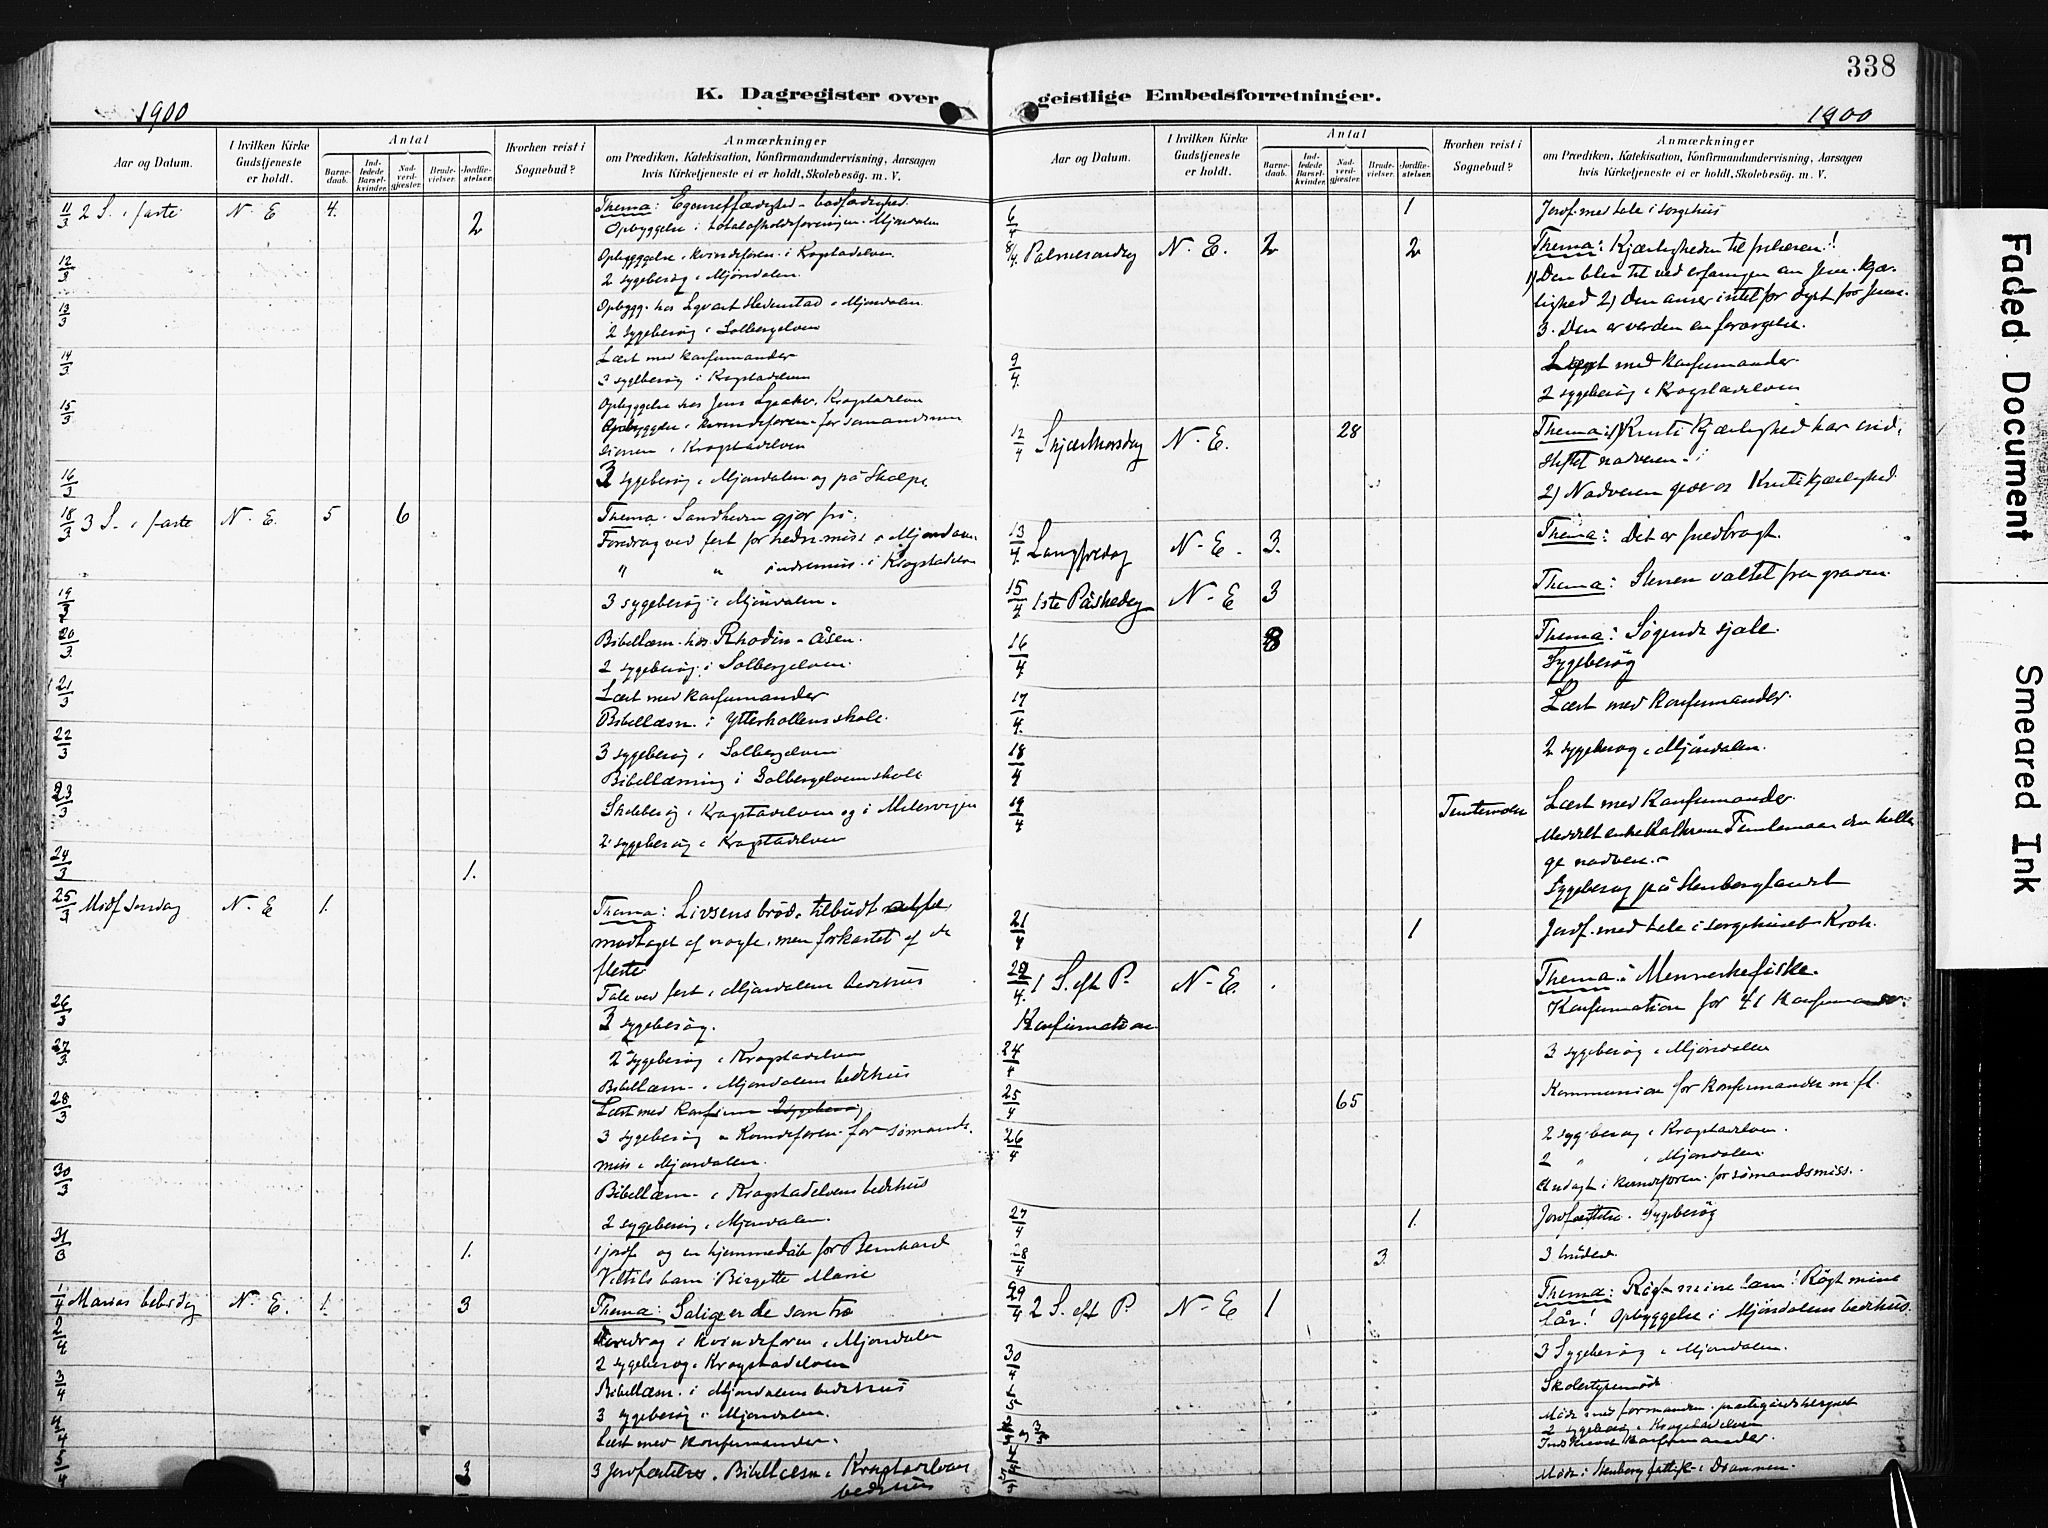 338
K. Dagregister over
geistlige Embedsforretninger.
1900
1900
Aar og Datum.
I hvilken Kirke Gudstjeneste er holdt.
Antal
Barnedaab.
Indledede Barselkvinder.
Nadverdgjester.
Brudevielser.
Jordfæstelser.
Hvorhen reist i Sognebud?
Anmærkninger
om Prædiken, Katekisation, Konfirmandundervisning, Aarsagen
hvis Kirketjeneste ei er holdt, Skolebesøg. m. V.
11/3 2 S. i faste N. E. 4. 2 Thema: Egenretfærdighed - bodfærdighed.
Opbyggelse i totalafholdsforeningen. Mjøndalen
12/3 Opbyggelse i kvindeforen. i Krogstadelven.
2 sygebesøg i Mjøndalen.
13/3 Opbygg. hos Hedenstad i Mjøndalen.
2 sygebesøg i Solbergelven
14/3 Læst med konfirmander
3 sygebesøg i Krogstadelven
15/3 Opbyggelse hos Jens Krogstadelven
Opbyggelse i kvindeforen. for sømandsmissionen i Krogstadelven
16/3 3 sygebesøg i Mjøndalen og på
18/3 3 S. i faste N. E. 5 6 Thema. Sandheden gjør fri.
Foredrag ved fest for hedn. miss i Mjøndalen
" " indremiss. i Krogstadelven
19/3 3 sygebesøg i Mjøndalen.
20/3 Bibellæsn. hos Rhodin - Åsen.
2 sygebesøg i Solbergelven.
21/3 Læst med konfirmander
Bibellæsn. i Ytterkollens skole.
22/3 3 sygebesøg i Solbergelven
Bibellæsning i Solbergelvens skole
23/3 Skolebesøg i Krogstadelven og i
2 sygebesøg i Krogstadelven
24/3 1.
25/3 Midf. søndag N. E 1. Thema: Livsens brød. tilbudt alle
modtaget af nogle, men forkastet af de
fleste
Tale ved fest i Mjøndalens bedehus
26/3 3 sygebesøg.
27/3 2 sygebesøg i Krogstadelven
Bibellæsn. i Mjøndalens bedehus
28/3 Læst med konfirm
3 sygebesøg Kvindeforen. for sømands-
miss i Mjøndalen.
30/3 Bibellæsn. i Krogstadelvens bedehus
2 sygebesøg i Mjøndalen.
31/3 1. 1 jordf og en hjemmedåb for Bernhard
barn: Birgitte Marie
1/4 Marias bebdag N. E. 1. 3 Thema: Salig er de som tro
2/4 Foredrag i kvindeforen i Mjøndalen
2 sygebesøg i Krogstadelven
3/4 Bibellæsn. i Mjøndalens bedehus
3 sygebesøg i Mjøndalen.
4/4 Læst med konfirmander.
5/4 3 3 Jordfæstelser. Bibellæsn. i Krogstadelven
bedehus
Aar og Datum.
I hvilken Kirke Gudstjeneste er holdt.
Antal
Barnedaab.
Indledede Barselkvinder.
Nadverdgjester.
Brudevielser.
Jordfæstelser.
Hvorhen reist i Sognebud?
Anmærkninger
om Prædiken, Katekisation, Konfirmandundervisning, Aarsagen
hvis Kirketjeneste ei er holdt, Skolebesøg. m. V.
6/4 1 Jordf. med tale i sørgehus
8/4 Palmesøndag N. E. 2 2 Thema: Kjærligheden til frelseren!
1) Den blev til ved erfaringen om Jesu kjær-
lighed 2) Den anser intet for dyrt for Jesus.
3. Den er verden en forargelse.
9/4 Læst med konfirmander.
2 sygebesøg i Krogstadelven
12/4 Skjærthorsdag N. E. 28 Thema: 1) Kristi kjærlighed har ind-
stiftet nadveren.
2) Nadveren giver os Kristi kjærlighed.
13/4 Langfredag N. E. 3. Thema: Det er fuldbragt.
15/4 1ste Påskedag N. E 3 Thema: Stenen valtet fra graven
16/4 8 Thema: Søgende sjæle.
Sygebesøg
17/4 Læst med konfirmander.
18/4 2 sygebesøg i Mjøndalen.
19/4 Læst med konfirmander.
Meddelt enke den helli-
ge nadver.
Sygebesøg på Stenberglandet
21/4 1 Jordf. med tale i sørgehuset
22/4 1 S. eft P. N. E. Thema: Menneskefiske.
Konfirmation Konfirmation for 41 konfirmander.
24/4 3 sygebesøg i Mjøndalen
25/4 65 Kommunion for konfirmander m fl.
26/4 2 sygebesøg i Krogstadelven.
2 " i Mjøndalen
Andagt i kvindeforen. for sømandsmiss.
27/4 1. Jordfæstelse. Sygebesøg
28/4 3. 3 brudevi.
29/4 2 S. eft P. N. E 1 Thema: Røgt mine lam! Røgt mine
får! Opbyggelse i Mjøndalens bedehus.
30/4 3 Sygebesøg i Mjøndalen.
1/5 Skolestyremøde
Møde med formanden
2/5 og 3/5 2 sygebesøg i Krogstadelven
Indskrevet konfirmander.
Møde i Drammen.
Faded Document
Smeared Ink